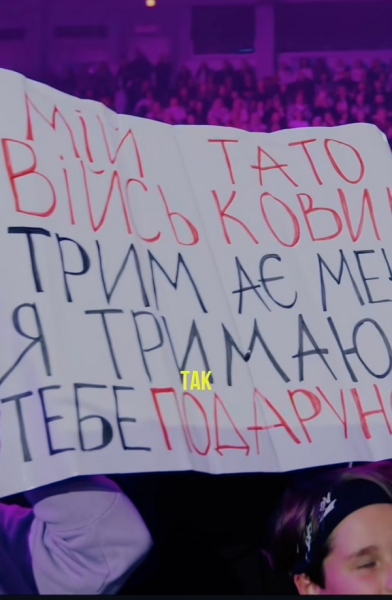 МІЙ ТАТО
ВІЙСЬКОВИ
ТРИМАЄ МЕ
Я ТРИМАЮ
ТАК
ТЕБЕ ПОДАРУН